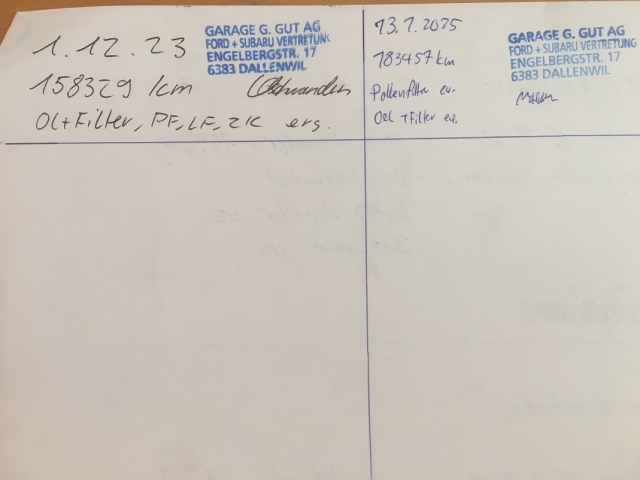 1.12.23
GARAGE G. GUT AG
FORD + SUBARU VERTRETUNG
ENGELBERGSTR. 17
6383 DALLENWIL
158329 km
Öl+Filter, PF, LF, ZK ers.
13.7.2025
GARAGE G. GUT AG
FORD + SUBARU VERTRETUNG
ENGELBERGSTR. 17
6383 DALLENWIL
183457 km
Pollenfilter er.
Oel + Filter er.